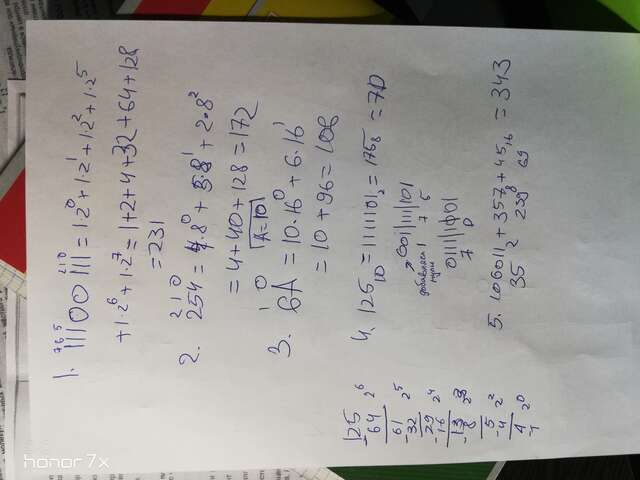 1. 11100111 = 1·2⁰+1·2¹+1·2²+1·2⁵
7 6 5 2 1 0
+1·2⁶+1·2⁷=1+2+4+32+64+128
=231
2 1 0
2. 254 = 4·8⁰ + 5·8¹ + 2·8²
=4+40+128=172
A=10
1 0
3. 6A = 10·16⁰ + 6·16¹
= 10 + 96 = 106
4. 125₁₀ = 1111101₂ = 175₈ = 7D
001111101
добавляем нули 1 7 5
01111101
7 D
5. 100011₂ + 357₈ + 45₁₆ = 343
35 239 69
125
-64 2⁶
61
-32 2⁵
29
-16 2⁴
13
-8 2³
5
-4 2²
1 2⁰
honor 7x